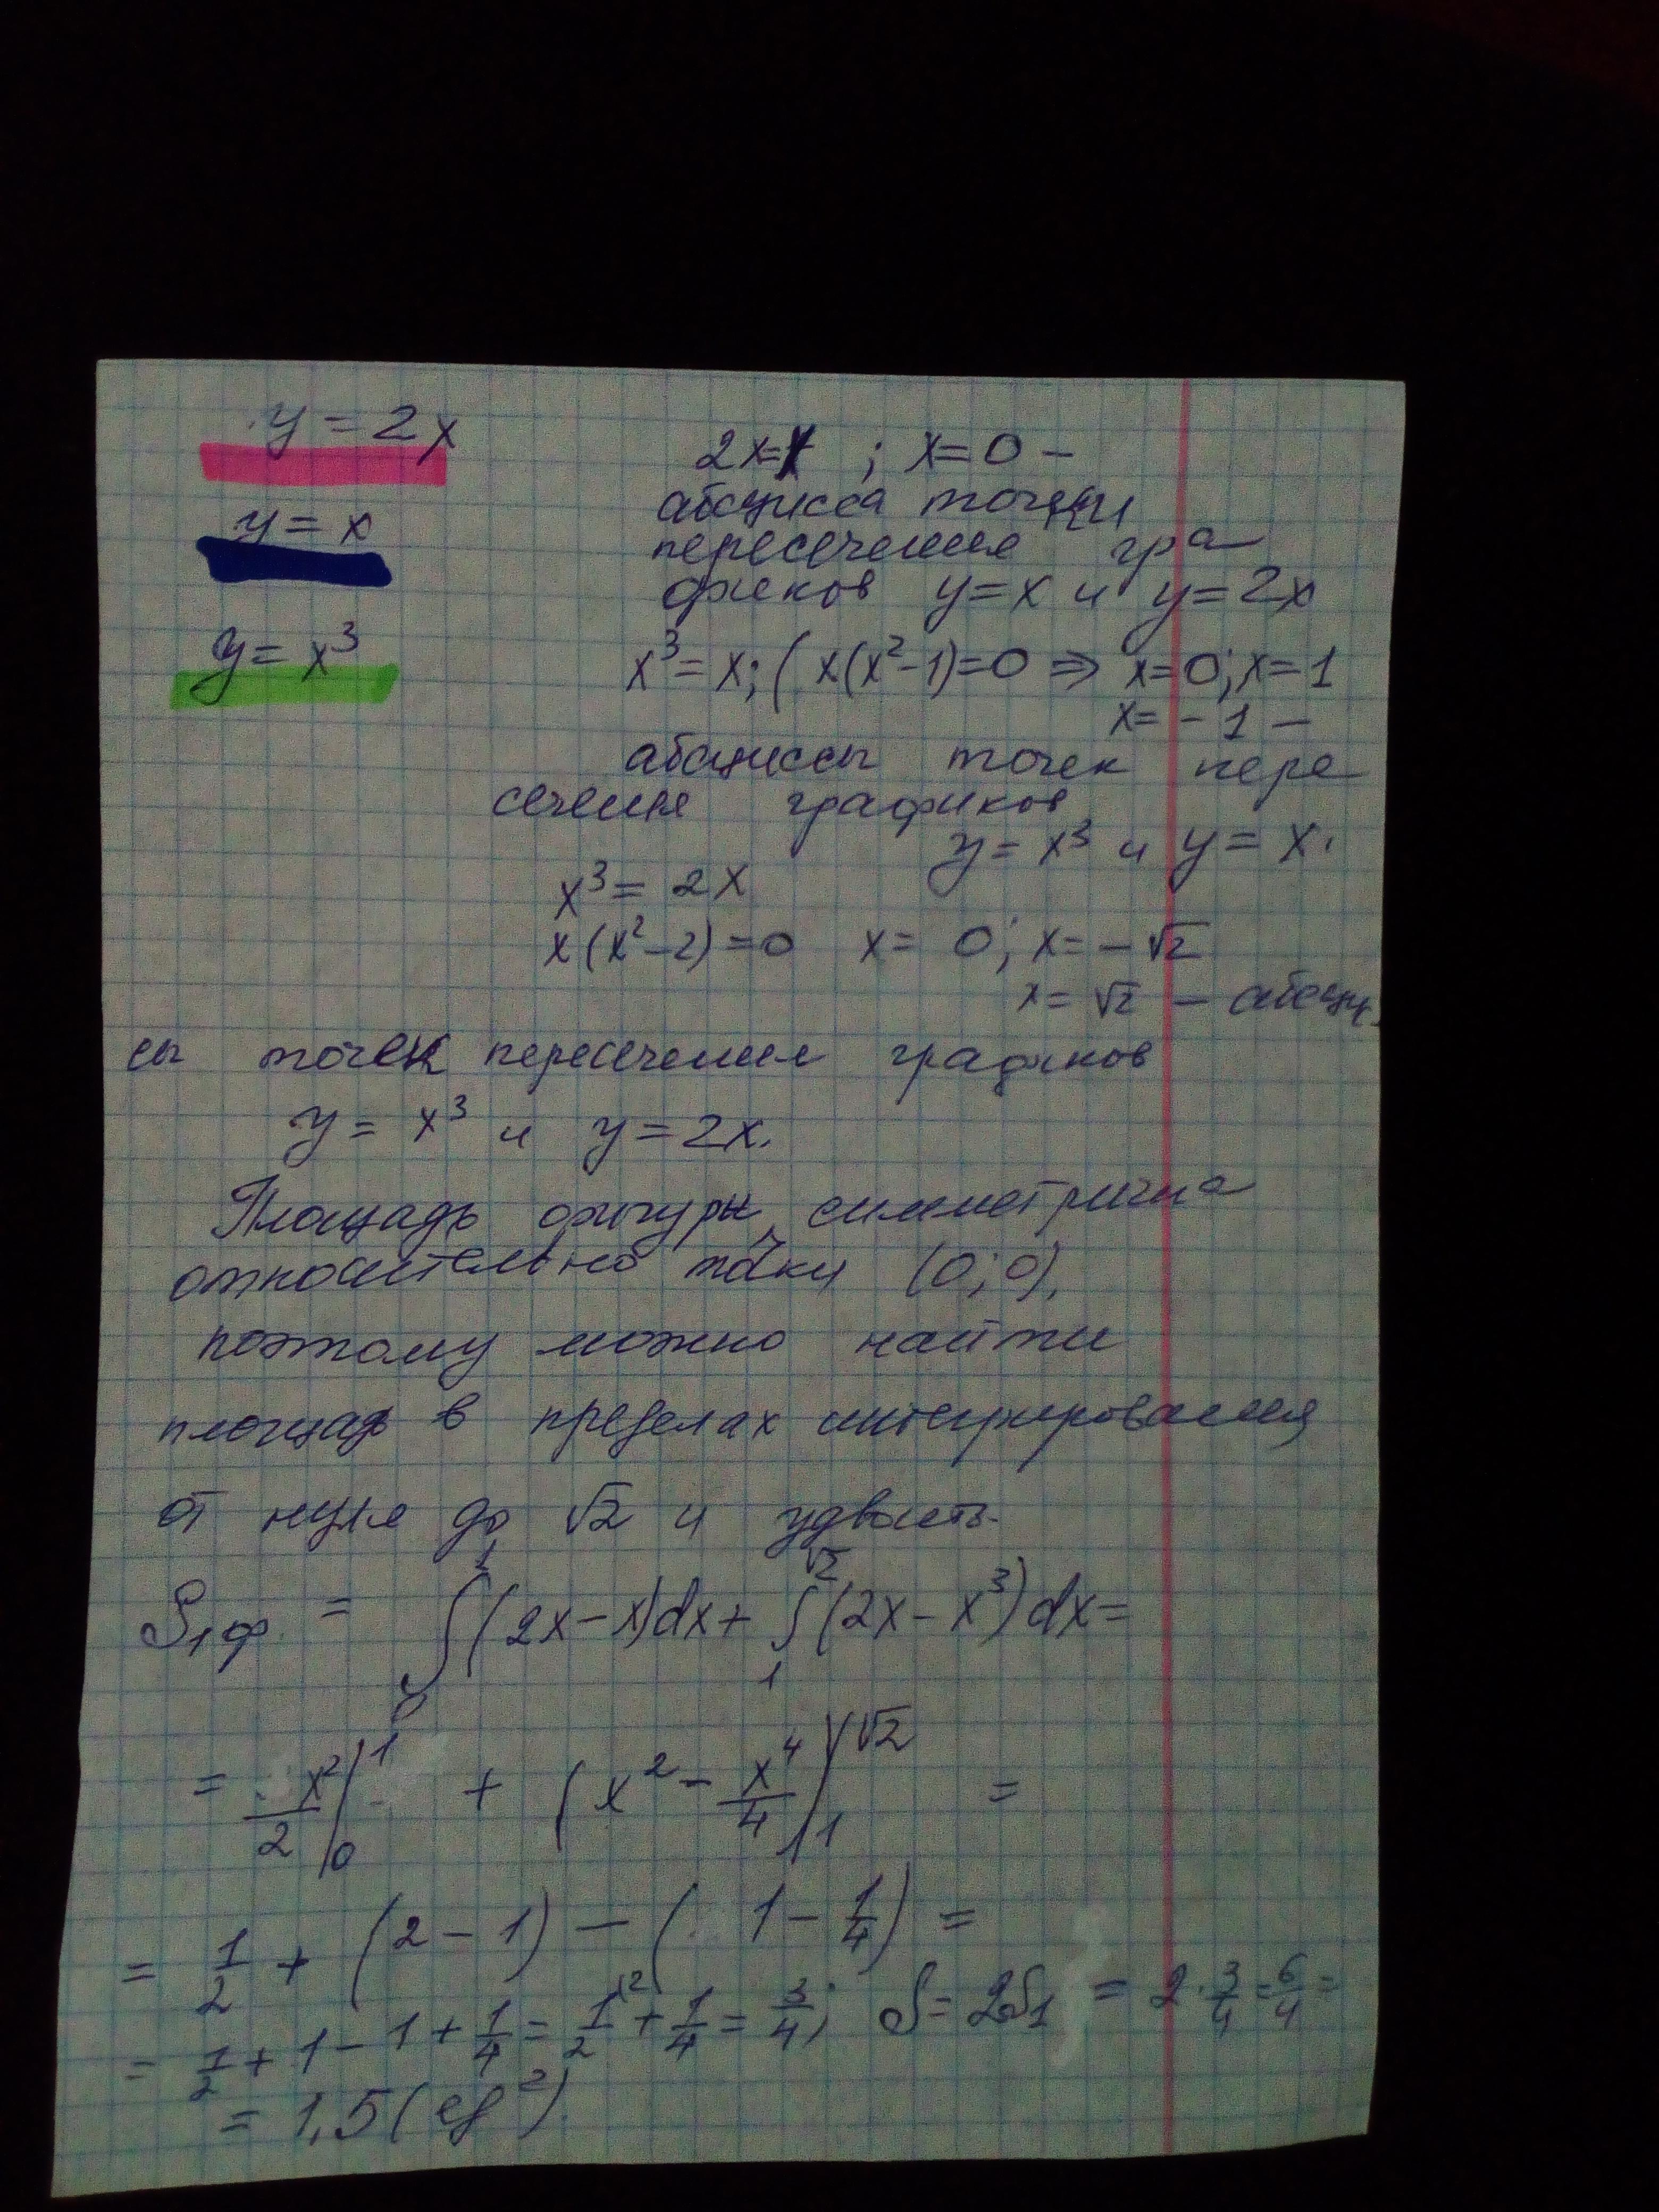 y = 2x
y = x
y = x³
2x=x ; x=0 –
абсцисса точки
пересечения гра
фиков y=x и y=2x
x³ = x; ( x(x²-1)=0 ⇒ x=0; x=1
x= -1 –
абсциссы точек пере
сечения графиков
y = x³ и y = x.
x³ = 2x
x(x²-2)=0 x= 0; x= -√2
x= √2 – абсцис
сы точек пересечения графиков
y = x³ и y = 2x.
Площадь фигуры, симметрична
относительно точки (0;0),
поэтому можно найти
площадь в пределах интегрирования
от нуля до √2 и удвоить.
S₁ф = ∫₀¹(2x-x)dx + ∫₁^√2(2x-x³)dx =
= x²/2 |₀¹ + (x² - x⁴/4)|₁^√2 =
= 1/2 + (2-1) - (1 - 1/4) =
= 1/2 + 1 - 1 + 1/4 = 1/2 + 1/4 = 3/4; S = 2S₁ = 2·3/4 = 6/4 =
= 1,5 (ед²).